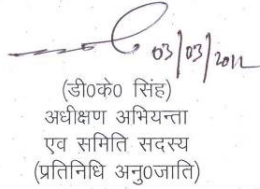 03/03/2012
(डी0के0 सिंह)
अधीक्षण अभियन्ता
एव समिति सदस्य
(प्रतिनिधि अनु0जाति)